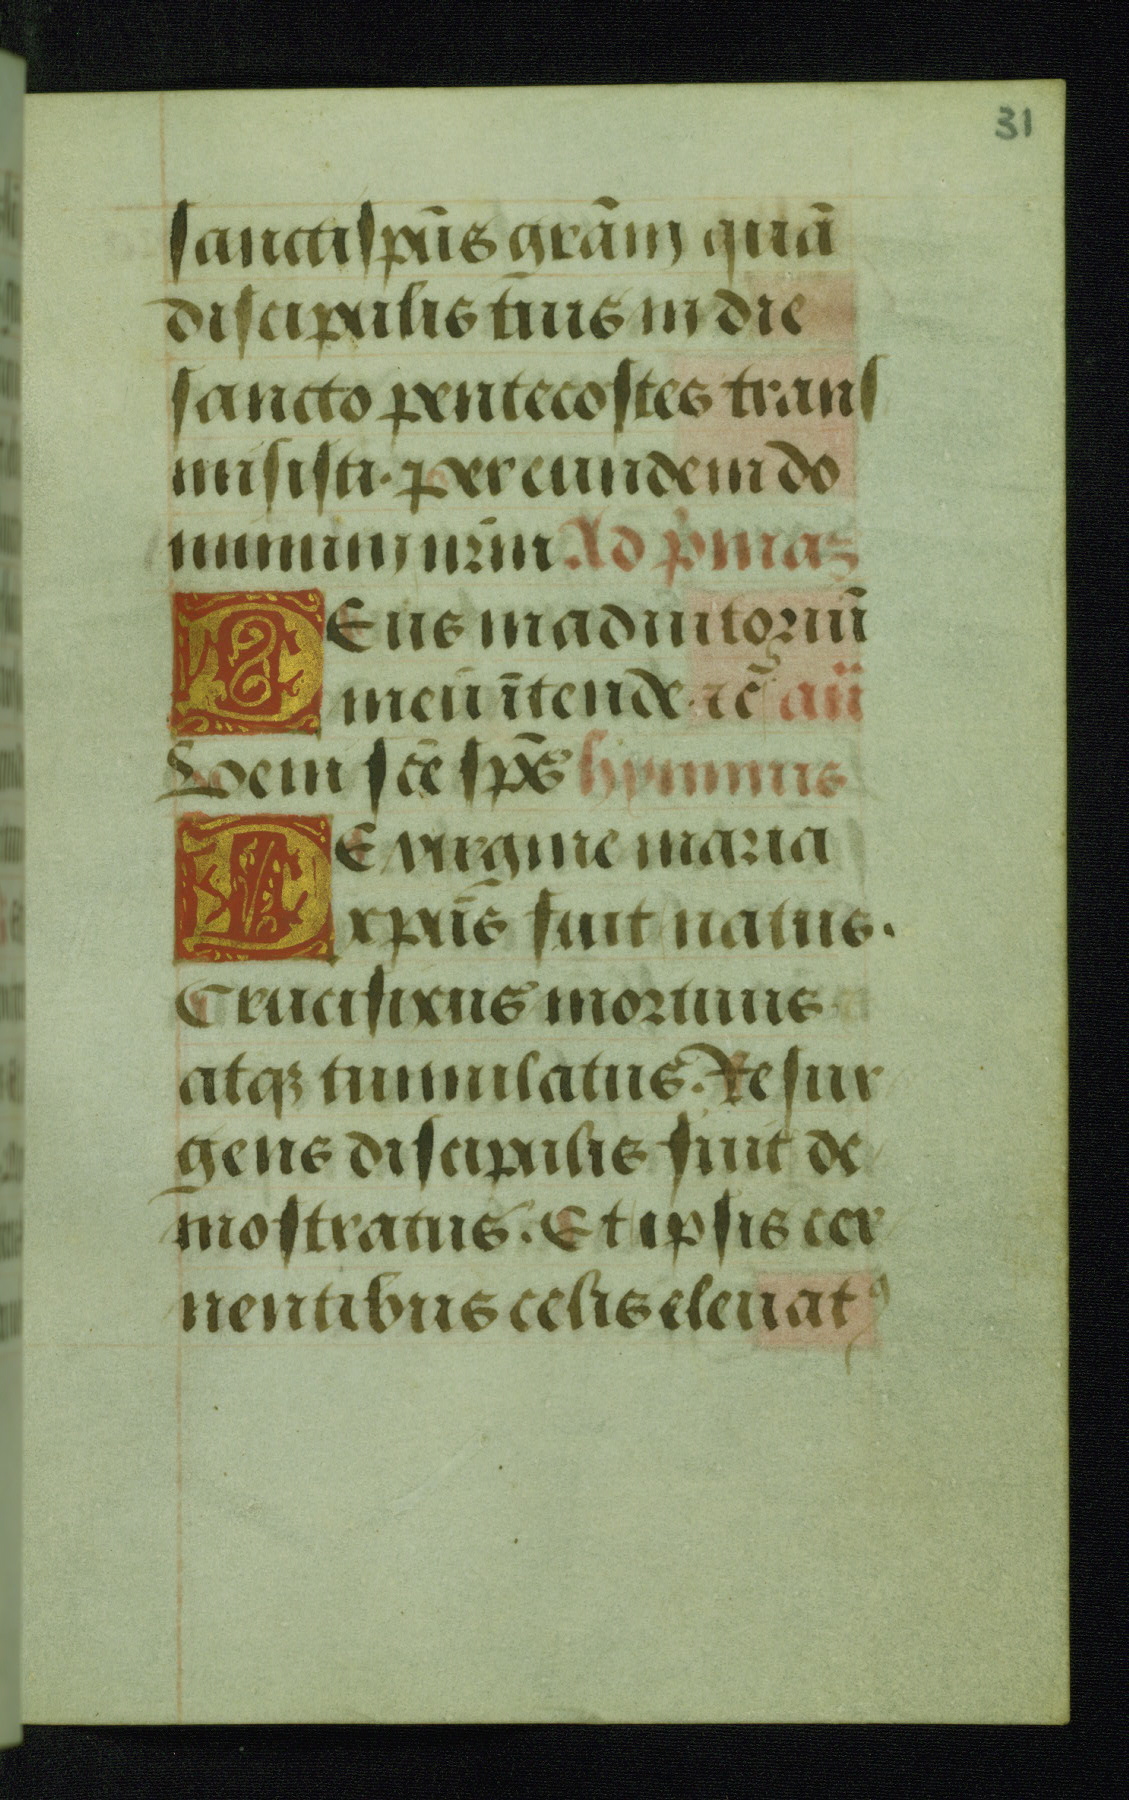 31
sancti spūs grām quā
discipulis tuis in die
sancto pentecostes trans
misisti. per eundem do
minum nr̄m Ad p̄maz
DEus in adiutoriū
meū ītende. ⁊c̄ aū
Veni scē spūs hymnus
DE virgine maria
xpūs fuit natus.
Crucifixus mortuus
atqꝫ tumulatus. Resur
gens discipulis fuit de
mostratus. Et ipsis cer
nentibus celis eleuatꝰ